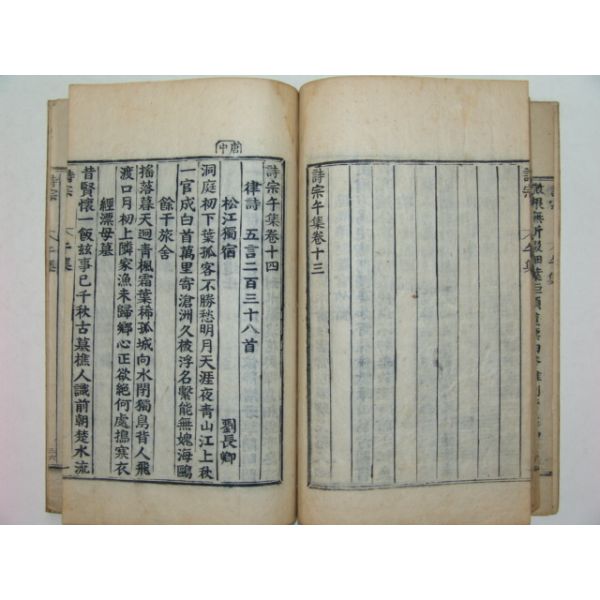 詩宗 午集
詩宗午集卷十三
中唐
詩宗午集卷十四
律詩 五言二百三十八首
松江獨宿 劉長卿
洞庭初下葉孤客不勝愁明月天涯夜青山江上秋
一官成白首萬里寄滄洲久被浮名繫能無媿海鷗
餘干旅舍
搖落暮天迥青楓霜葉稀孤城向水閉獨鳥背人飛
渡口月初上隣家漁未歸鄉心正欲絶何處搗寒衣
經漂母墓
昔賢懷一飯玆事已千秋古墓樵人識前朝楚水流
詩宗 午集